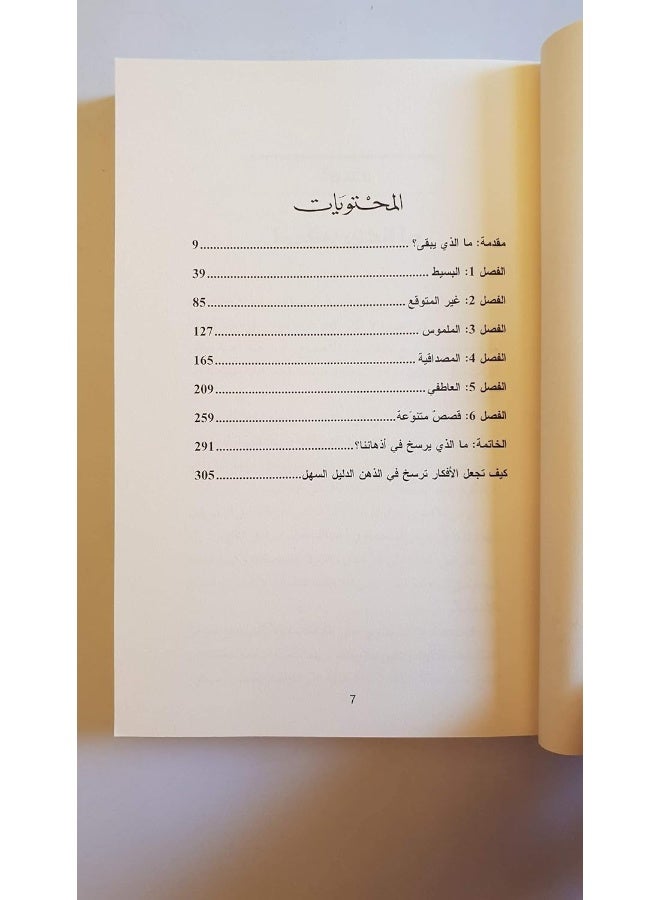 المحْتويَات
مقدمة: ما الذي يبقى؟ ................................................ 9
الفصل 1: البسيط ................................................ 39
الفصل 2: غير المتوقع ................................................ 85
الفصل 3: الملموس ................................................ 127
الفصل 4: المصداقية ................................................ 165
الفصل 5: العاطفي ................................................ 209
الفصل 6: قصصٌ متنوّعة ................................................ 259
الخاتمة: ما الذي يرسخ في أذهاننا؟ ................................ 291
كيف تجعل الأفكار ترسخ في الذهن الدليل السهل ..................... 305
7